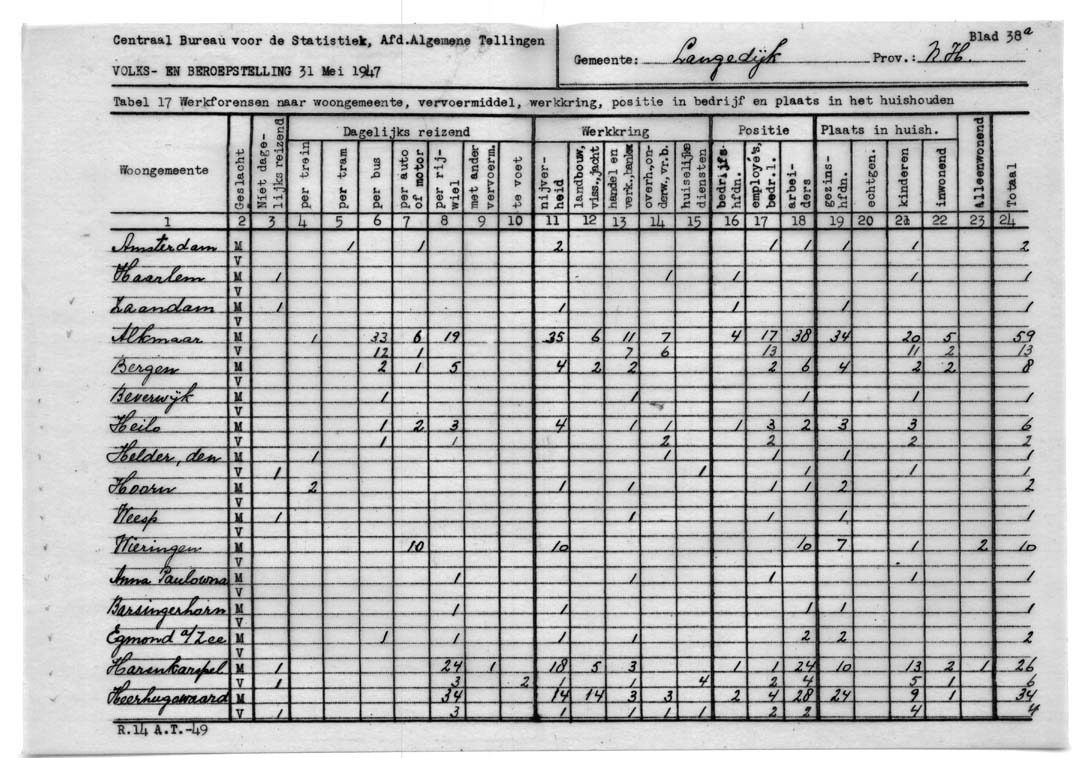 Centraal Bureau voor de Statistiek, Afd.Algemene Tellingen
VOLKS- EN BEROEPSTELLING 31 Mei 1947
Gemeente: Langedijk Prov.: N.H. Blad 38a
Tabel 17 Werkforensen naar woongemeente, vervoermiddel, werkkring, positie in bedrijf en plaats in het huishouden
Woongemeente Geslacht Niet dage- lijks reizend Dagelijks reizend Werkkring Positie Plaats in huish. alleenwonend Totaal
per trein per tram per bus per auto of motor per rij- wiel met ander vervoerm. te voet nijver- heid landbouw, viss., jacht handel en verk., bankw. overh., on- derw., vr.b. huiselijke diensten bedrijfs- hfdn. employé's, bedr.l. arbei- ders gezins- hfdn. echtgen. kinderen inwonend
1 2 3 4 5 6 7 8 9 10 11 12 13 14 15 16 17 18 19 20 21 22 23 24
Amsterdam M 1 1 2 1 1 1 1 2
V
Haarlem M 1 1 1 1 1
V
Zaandam M 1 1 1 1 1
V
Alkmaar M 1 33 6 19 35 6 11 7 4 17 38 34 20 5 59
V 12 1 7 6 13 11 2 13
Bergen M 2 1 5 4 2 2 2 6 4 2 2 8
V
Beverwijk M 1 1 1 1 1
V
Heilo M 1 2 3 4 1 1 1 3 2 3 3 6
V 1 1 2 2 2 2
Helder, den M 1 1 1 1 1
V 1 1 1 1 1
Hoorn M 2 1 1 1 1 2 2
V
Weesp M 1 1 1 1 1
V
Wieringen M 10 10 10 7 1 2 10
V
Anna Paulowna M 1 1 1 1 1
V
Barsingerhorn M 1 1 1 1 1
V
Egmond a/Zee M 1 1 1 1 2 2 2
V
Harenkarspel M 1 24 1 18 5 3 1 1 24 10 13 2 1 26
V 1 3 2 1 1 4 2 4 5 1 6
Heerhugowaard M 34 14 14 3 3 2 4 28 24 9 1 34
V 1 3 1 1 1 1 2 2 4 4
R.14 A.T.-49